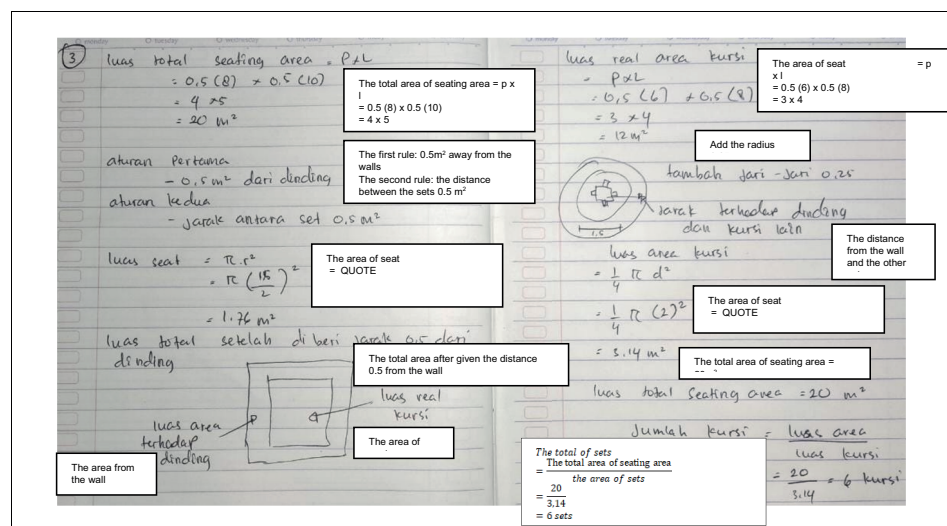 3
luas total seating area = P x L
= 0,5 (8) x 0,5 (10)
= 4 x 5
= 20 m²
The total area of seating area = p x
l
= 0.5 (8) x 0.5 (10)
= 4 x 5
aturan Pertama
- 0,5 m² dari dinding
aturan kedua
- jarak antara set 0,5 m²
The first rule: 0.5m² away from the
walls
The second rule: the distance
between the sets 0.5 m²
luas seat = π.r²
= π (1,5/2)²
= 1.76 m²
The area of seat
= QUOTE
luas total setelah di beri jarak 0,5 dari
dinding
The total area after given the distance
0.5 from the wall
luas real
kursi
luas area
terhadap
dinding
The area of
The area from
the wall
luas real area kursi
= P x L
= 0,5 (6) x 0,5 (8)
= 3 x 4
= 12 m²
The area of seat = p
x l
= 0.5 (6) x 0.5 (8)
= 3 x 4
Add the radius
tambah jari-jari 0,25
jarak terhadap dinding
dan kursi lain
1,5
The distance
from the wall
and the other
luas area kursi
= 1/4 π d²
= 1/4 π (2)²
= 3.14 m²
The area of seat
= QUOTE
The total area of seating area =
luas total Seating area = 20 m²
Jumlah kursi = luas area / luas kursi
= 20 / 3.14 = 6 kursi
The total of sets
= The total area of seating area / the area of sets
= 20 / 3,14
= 6 sets